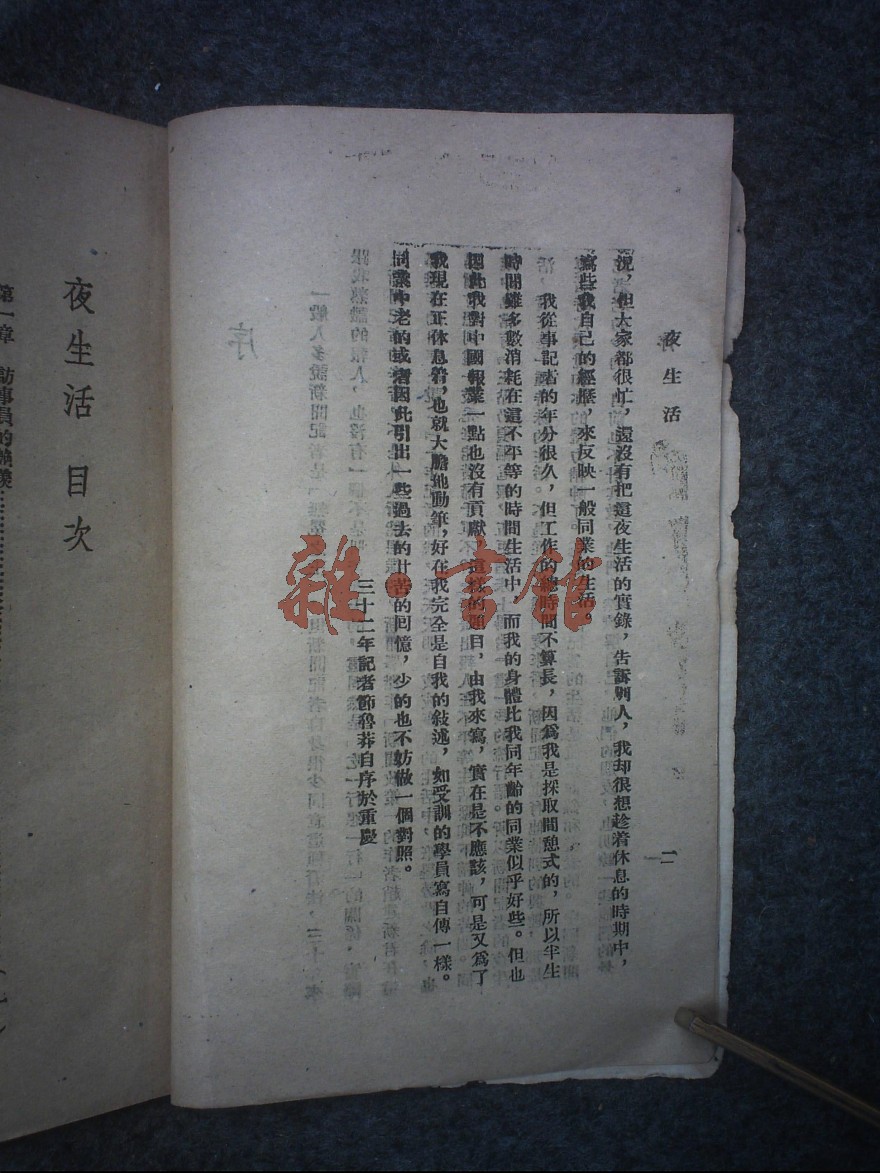 夜生活
二
況，但大家都很忙，還沒有把這夜生活的實錄，告訴別人，我却很想趁着休息的時期中，
寫些我自己的經歷，來反映一般同業的生活。
我從事記者的年分很久，但工作的總時間不算長，因爲我是採取間憩式的，所以半生
時間雖多數消耗在這不平等的時間生活中，而我的身體比我同年齡的同業似乎好些。但也
因此我對中國報業一點也沒有貢獻，這樣的題目，由我來寫，實在是不應該，可是又爲了
我現在正休息着，也就大膽地動筆，好在我完全是自我的敍述，如受訓的學員寫自傳一樣。
同業中老的或者因此引出一些過去的甘苦的回憶，少的也不妨做一個對照。
三十二年記者節魯莽自序於重慶
雜·書館
夜生活 目次
第一章 訪事員的